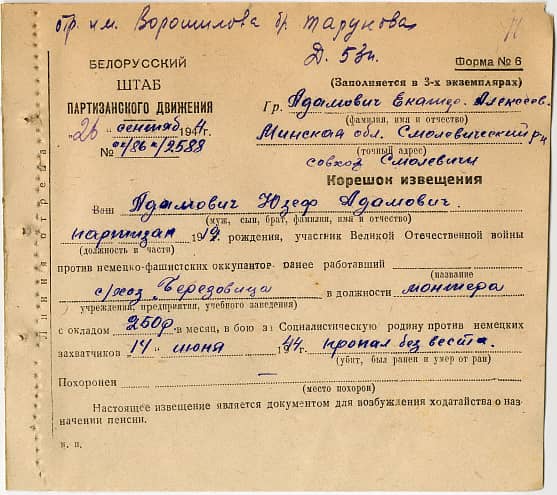 отр. им. Ворошилова бр. Тарунова
Д. 53п.
БЕЛОРУССКИЙ
ШТАБ
ПАРТИЗАНСКОГО ДВИЖЕНИЯ
"26" сентяб 1944г.
№ /86 /2588
Форма № 6
(Заполняется в 3-х экземплярах)
Гр. Адамович Екатер. Алексеев.
(фамилия, имя и отчество)
Минская обл. Смолевический р-н
(точный адрес)
совхоз Смолевичи
Корешок извещения
Ваш Адамович Юзеф Адамович.
(муж, сын, брат, фамилия, имя и отчество)
партизан 19 г. рождения, участник Великой Отечественной войны
(должность и части)
против немецко-фашистских оккупантов ранее работавший
(название
с/хоз. Березовица в должности монтера
учреждения, предприятия, учебного заведения)
с окладом 250р. в месяц, в бою за Социалистическую родину против немецких
захватчиков "14" июня 1944 г. пропал без вести.
(убит, был ранен и умер от ран)
Похоронен —
(место похорон)
Настоящее извещение является документом для возбуждения ходатайства о наз-
начении пенсии.
м. п.
Линия отреза